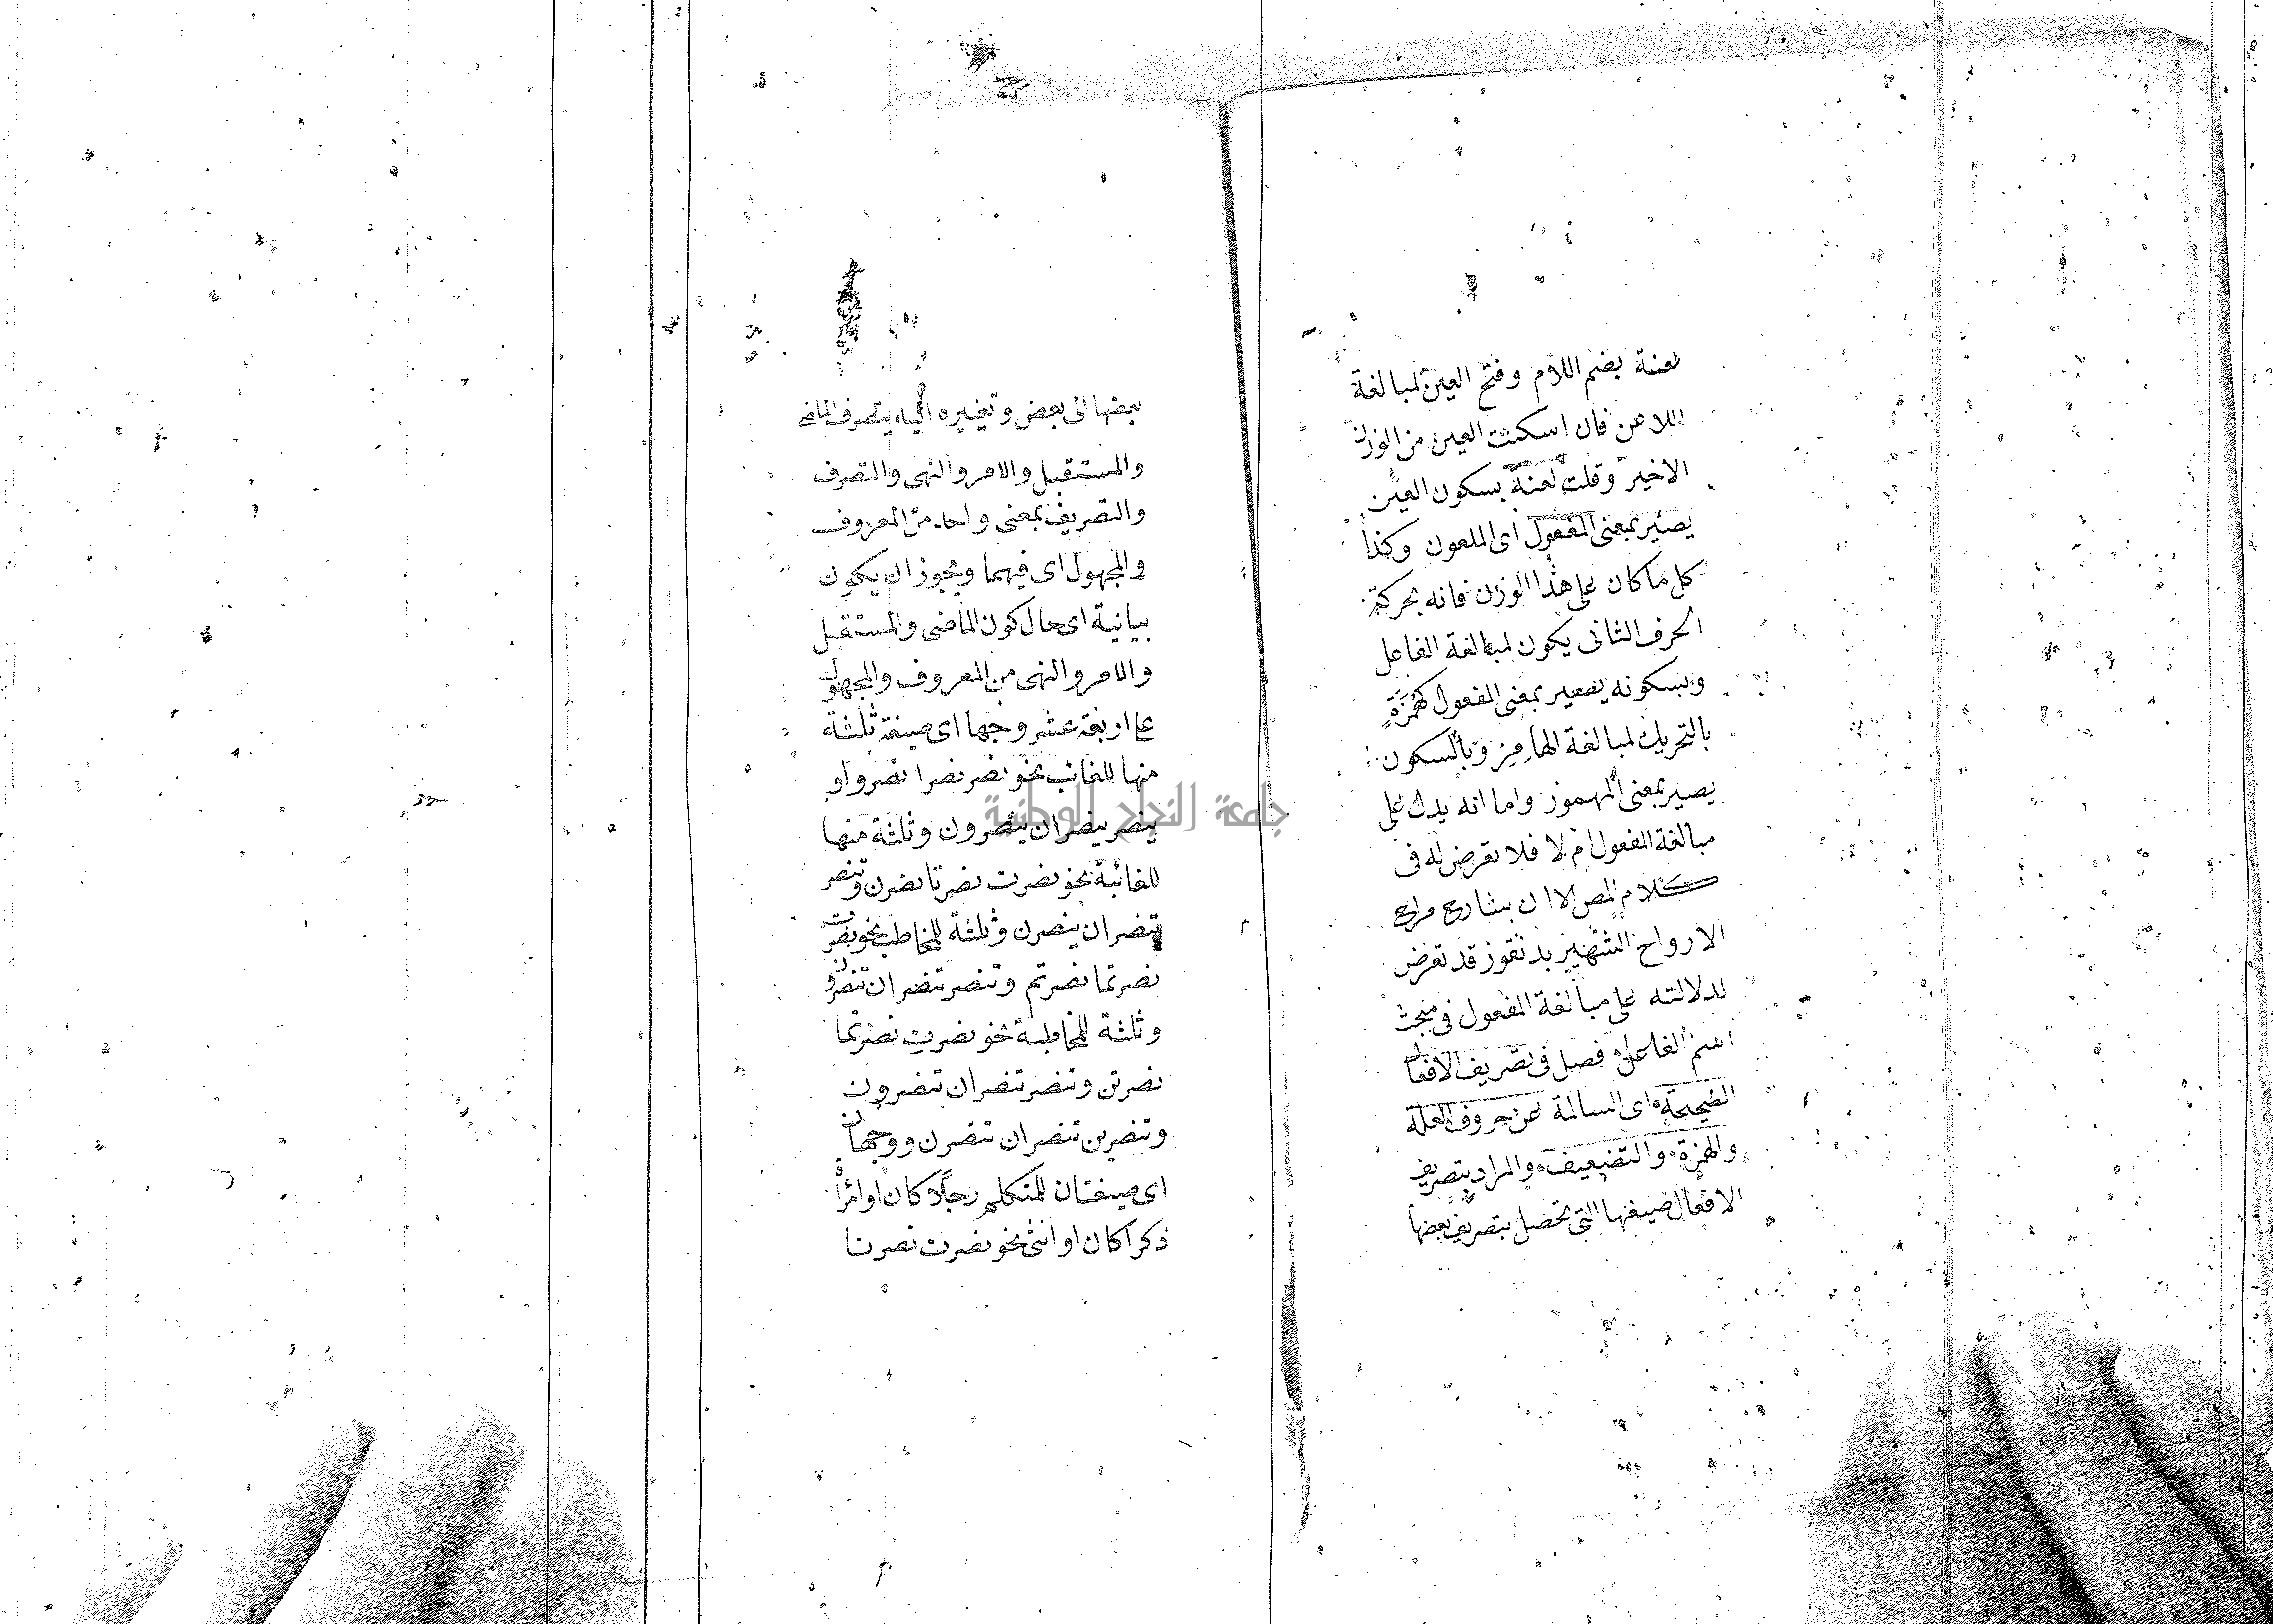 لعنة بضم اللام وفتح العين لمبالغة
اللاعن فان اسكنت العين من الوزن
الاخير وقلت لعنة بسكون العين
يصير بمعنى المفعول اى الملعون وكذا
كل ما كان على هذا الوزن فانه بحركة
الحرف الثانى يكون لمبالغة الفاعل
وبسكونه يصير بمعنى المفعول كهُمَزَةٍ
بالتحريك لمبالغة الهامِزِ وبالسكون
يصير بمعنى المهموز واما انه يدل على
مبالغة المفعول ام لا فلا تعرض له فى
كلام المص الا ان شارح مراح
الارواح بدنقوز قد تعرض
لدلالته على مبالغة المفعول فى مبحث
اسم الفاعل فصل فى تصريف الافعال
الصحيحة اى السالمة عن حروف العلة
والهمزة والتضعيف والمراد بتصريف
الافعال صيغها التى تحصل بتصريف بعضها
بعضها الى بعض وتغييره اليه يتصرف الماضى
والمستقبل والامر والنهى والتصرف
والتصريف بمعنى واحد من المعروف
والمجهول اى فيهما ويجوز ان يكون
بيانية اى حال كون الماضى والمستقبل
والامر والنهى من المعروف والمجهول
على اربعة عشر وجها اى صيغة ثلثة
منها للغائب نحو نصر نصرا نصروا و
ينصر ينصران ينصرون وثلثة منها
للغائبة نحو نصرت نصرتا نصرن وتنصر
تنصران ينصرن وثلثة للمخاطب نحو نصرت
نصرتما نصرتم وتنصر تنصران تنصرون
وثلثة للمخاطبة نحو نصرتِ نصرتما
نصرتن وتنصر تنصران تنصرون
وتنصرين تنصران تنصرن ووجهان
اى صيغتان للمتكلم رجلا كان او امرأة
ذكرا كان او انثى نحو نصرت نصرنا
جامعة النجاح الوطنية